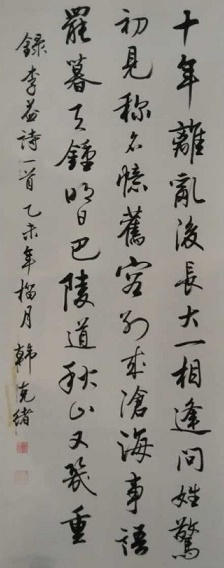 十年離亂後長大一相逢問姓驚
初見稱名憶舊容別來滄海事語
罷暮天鍾明日巴陵道秋山又幾重
錄李益詩一首乙未年榴月韓克緒